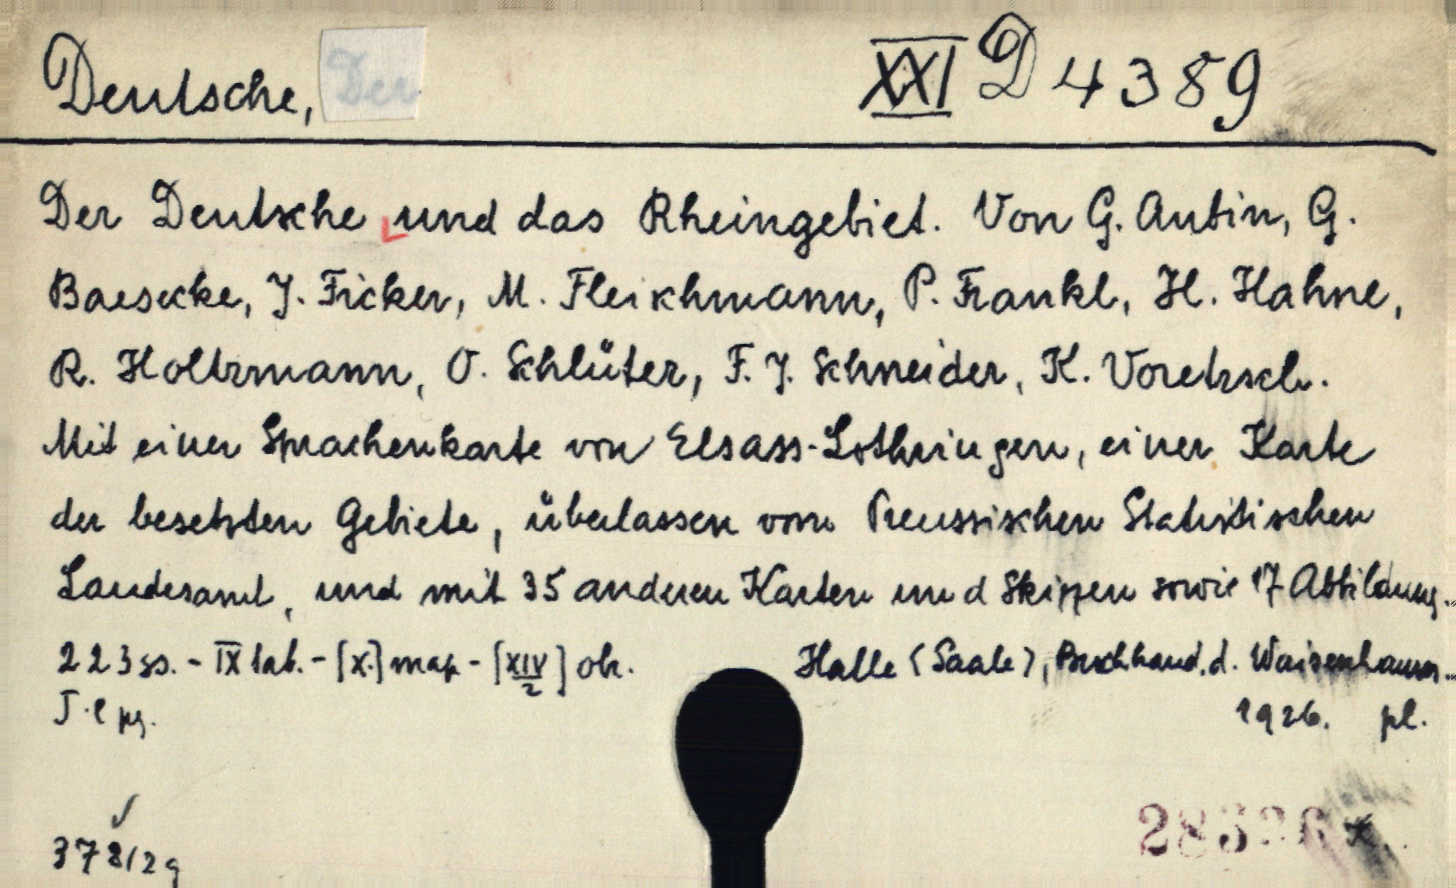 Deutsche, Der XXI D 4389
Der Deutsche und das Rheingebiet. Von G. Aubin, G.
Baesecke, J. Ficker, M. Fleischmann, P. Frankl, H. Hahne,
R. Holtzmann, O. Schlüter, F. J. Schneider, K. Voretzsch.
Mit einer Sprachenkarte von Elsass-Lothringen, einer Karte
der besetzten Gebiete, überlassen vom Preussischen Statistischen
Landesamt, und mit 35 anderen Karten und Skizzen sowie 17 Abbildung..
223 ss. - IX tab. - [X.] map - [XIV/2] ok. Halle (Saale), Buchhand. d. Waisenhauses..
1926. pl.
378/29